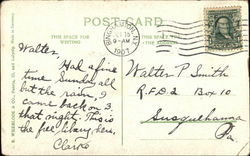 POST CARD
THIS SPACE FOR
WRITING
BINGHAMTON, N.Y.
9-AM
1907
Walter
Had a fine
time Sunday all
but the rain, I
came back on 3
that night. This is
the free library here.
Walter P Smith
R.F.D. 2 Box 10
Susquehanna
Pa